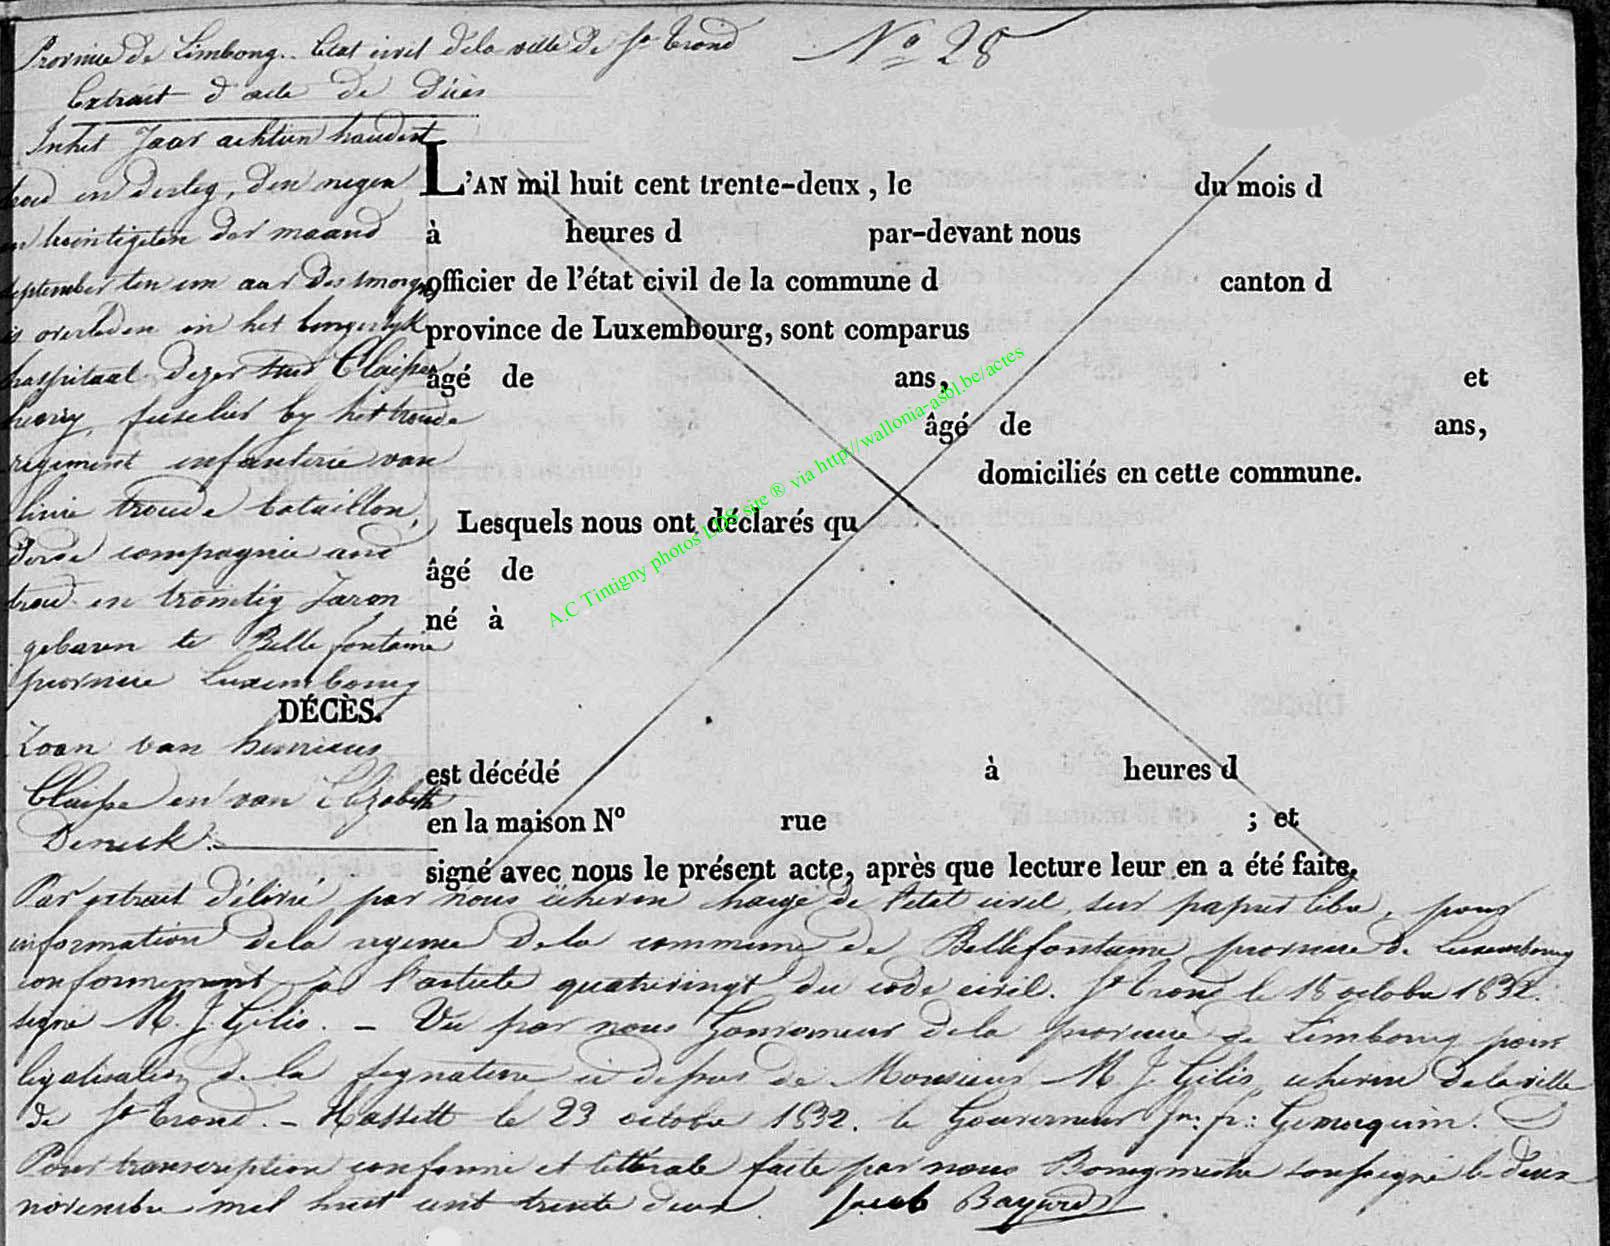 Province de Limbourg. Etat civil de la ville de St Trond N° 28
Extrait d'acte de décès
In het Jaar achtien hondert
twee en dertig, den negen
en twintigsten der maand
september ten een uur des smorgens
is overleden in het burgerlyk
hospitaal dezer stad Claisse
henry, fuselier by het tweede
regiment infanterie van
linie tweede bataillon,
derde compagnie oud
twee en twintig Jaren
geboren te Bellefontaine
province Luxembourg
Zoon van henricus
Claisse en van Elizabeth
L'AN mil huit cent trente-deux, le du mois d
à heures d par-devant nous
officier de l'état civil de la commune d canton d
province de Luxembourg, sont comparus
âgé de ans, et
âgé de ans,
domiciliés en cette commune.
Lesquels nous ont déclarés qu
âgé de
né à
DÉCÈS.
est décédé à heures d
en la maison N° rue ; et
signé avec nous le présent acte, après que lecture leur en a été faite.
Par extrait délivré par nous échevin chargé de l'état civil, sur papier libre, pour
information de la régence de la commune de Bellefontaine province de Luxembourg
conformement à l'article quatrevingt du code civil. St Trond le 18 octobre 1832.
signé M. J. Gilis. – Vu par nous Gouverneur de la province de Limbourg pour
légalisation de la signature ci dessus de Monsieur M. J. Gilis, échevin de la ville
de St Trond. – Hasselt le 23 octobre 1832. le Gouverneur
Pour transcription conforme et littérale faite par nous Bourgmestre soussigné le deux
novembre mil huit cent trente deux. Bayard
A.C Tintigny photos LDS site ® via http//wallonia-asbl.be/actes